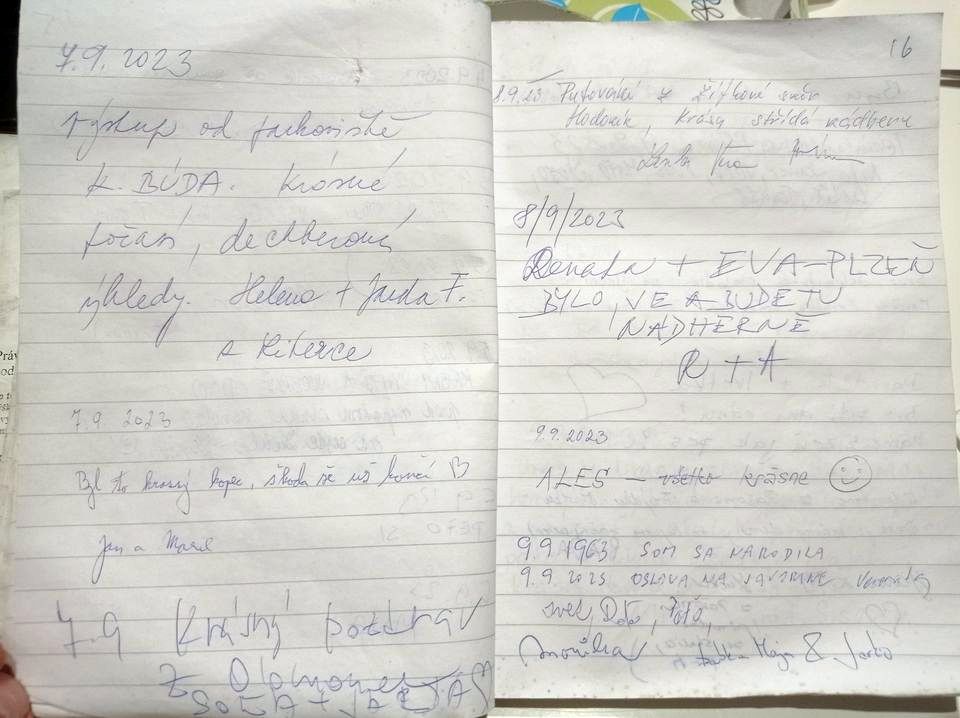 7.9. 2023
Výstup od parkoviště
K. BÚDA. Krásné
počasí, dechberoucí
výhledy. Helena + Jarda F.
z Liberce
7.9 2023
Byl to krásný kopec, škoda že už končí
Jan a
7.9 Krásný pozdrav
z Olomouce
16
8.9.23 Putování z
Hodonín, krása střídá nádheru
8/9/2023
Renata + EVA-PLZEŇ
BYLO, VE A BUDE TU
NÁDHERNĚ
R + A
9.9.2023
ALES — všetko krásne
9.9 1963 SOM SA NARODILA
9.9. 2023 OSLAVA NA JAVORINE
Monika &